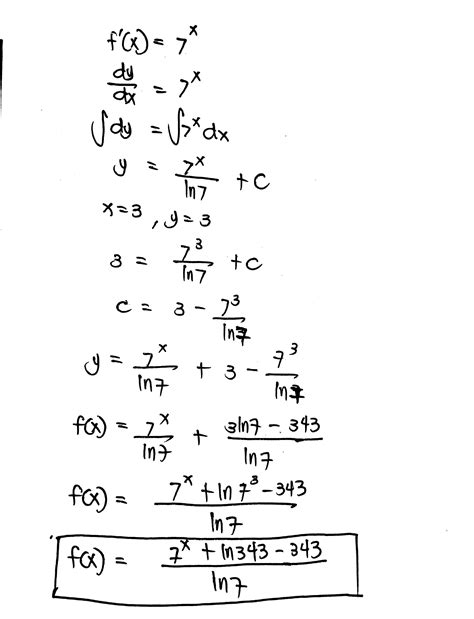 f'(x) = 7^x
dy/dx = 7^x
∫dy = ∫7^x dx
y = 7^x/ln7 + C
x=3, y=3
3 = 7^3/ln7 + C
C = 3 - 7^3/ln7
y = 7^x/ln7 + 3 - 7^3/ln7
f(x) = 7^x/ln7 + (3ln7 - 343)/ln7
f(x) = (7^x + ln7^3 - 343)/ln7
f(x) = (7^x + ln343 - 343)/ln7